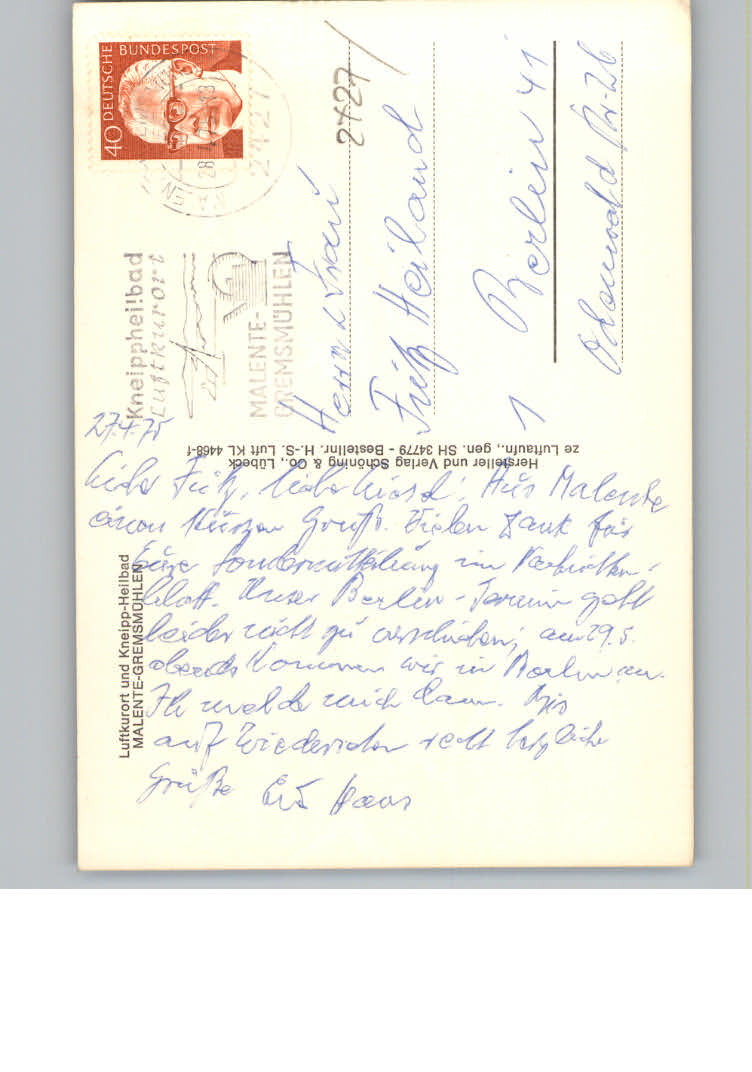 27.4.75
Lieber Fritz, liebe Liesel! Aus Malente
einen kurzen Gruß. Vielen Dank für
Eure Sonderzuteilung im
blatt. Unser Berlin-Termin geht
leider nicht zu verschieben; am 29.5.
abends kommen wir in Berlin an.
Ich melde mich dann. Bis
auf Wiedersehen recht herzliche
Grüße Eu Haas
Luftkurort und Kneipp-Heilbad
MALENTE-GREMSMÜHLEN
Hersteller und Verlag Schöning & Co., Lübeck
ze Luftaufn., gen. SH 34779 - Bestellnr. H.-S. Luft KL 4468-f
DEUTSCHE BUNDESPOST
40
2427
Kneippheilbad
Luftkurort
MALENTE-
GREMSMÜHLEN
2427
Herrn u Frau
Fritz Heiland
1 Berlin 41
Odenwaldstr. 26